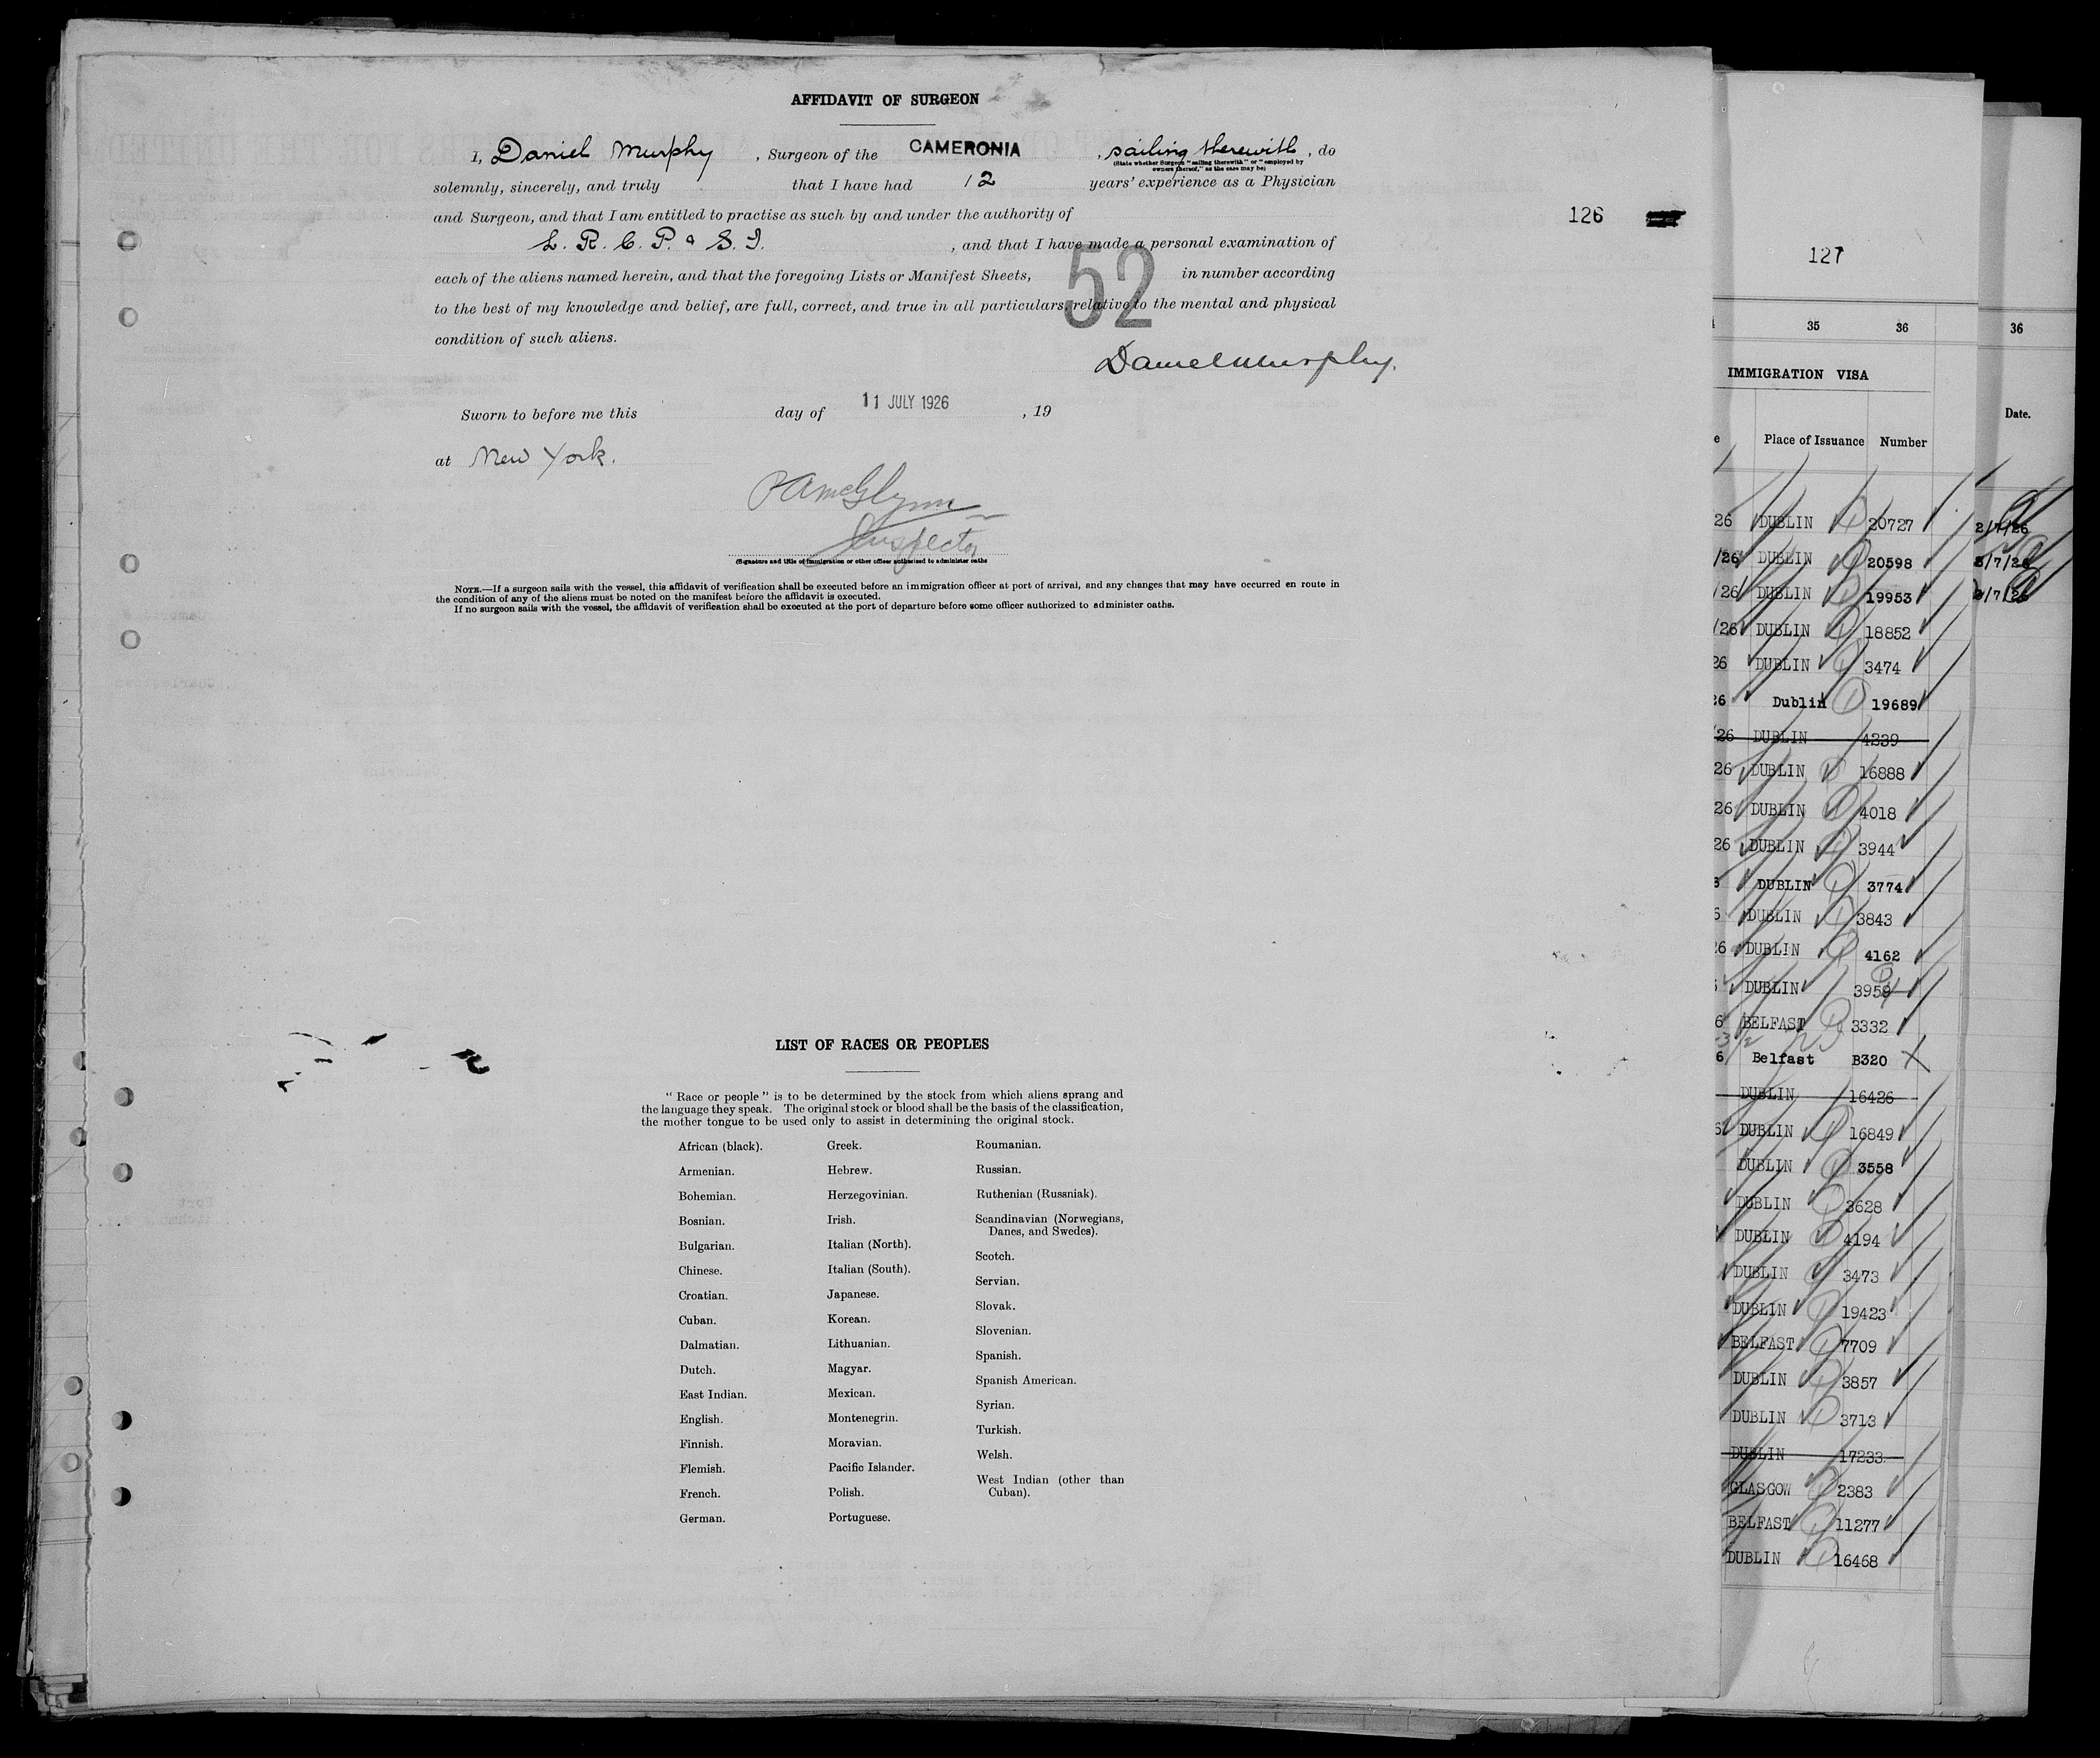 AFFIDAVIT OF SURGEON
I, Daniel Murphy, Surgeon of the CAMERONIA, sailing therewith, do
(State whether Surgeon "sailing therewith" or "employed by
owners thereof," as the case may be)
solemnly, sincerely, and truly that I have had 12 years' experience as a Physician
and Surgeon, and that I am entitled to practise as such by and under the authority of
L. R. C. P. & S. I. , and that I have made a personal examination of
each of the aliens named herein, and that the foregoing Lists or Manifest Sheets, 52 in number according
to the best of my knowledge and belief, are full, correct, and true in all particulars, relative to the mental and physical
condition of such aliens.
Daniel Murphy.
Sworn to before me this day of 11 JULY 1926 , 19
at New York.
Inspector
(Signature and title of immigration or other officer authorised to administer oaths
NOTE.—If a surgeon sails with the vessel, this affidavit of verification shall be executed before an immigration officer at port of arrival, and any changes that may have occurred en route in
the condition of any of the aliens must be noted on the manifest before the affidavit is executed.
If no surgeon sails with the vessel, the affidavit of verification shall be executed at the port of departure before some officer authorized to administer oaths.
126
LIST OF RACES OR PEOPLES
"Race or people" is to be determined by the stock from which aliens sprang and
the language they speak. The original stock or blood shall be the basis of the classification,
the mother tongue to be used only to assist in determining the original stock.
African (black).
Armenian.
Bohemian.
Bosnian.
Bulgarian.
Chinese.
Croatian.
Cuban.
Dalmatian.
Dutch.
East Indian.
English.
Finnish.
Flemish.
French.
German.
Greek.
Hebrew.
Herzegovinian.
Irish.
Italian (North).
Italian (South).
Japanese.
Korean.
Lithuanian.
Magyar.
Mexican.
Montenegrin.
Moravian.
Pacific Islander.
Polish.
Portuguese.
Roumanian.
Russian.
Ruthenian (Russniak).
Scandinavian (Norwegians,
Danes, and Swedes).
Scotch.
Servian.
Slovak.
Slovenian.
Spanish.
Spanish American.
Syrian.
Turkish.
Welsh.
West Indian (other than
Cuban).
127
35 36
IMMIGRATION VISA
Place of Issuance Number
26 DUBLIN 20727
/26 DUBLIN 20598
/26 DUBLIN 19953
/26 DUBLIN 18852
26 DUBLIN 3474
26 Dublin 19689
/26 DUBLIN 4239
26 DUBLIN 16888
26 DUBLIN 4018
26 DUBLIN 3944
DUBLIN 3774
DUBLIN 3843
26 DUBLIN 4162
DUBLIN 3959
6 BELFAST 3332
6 Belfast B320
DUBLIN 16426
DUBLIN 16849
DUBLIN 3558
DUBLIN 3628
DUBLIN 4194
DUBLIN 3473
DUBLIN 19423
BELFAST 7709
DUBLIN 3857
DUBLIN 3713
DUBLIN 17233
GLASGOW 2383
BELFAST 11277
DUBLIN 16468
36
Date.
2/7/26
/7/26
/7/26